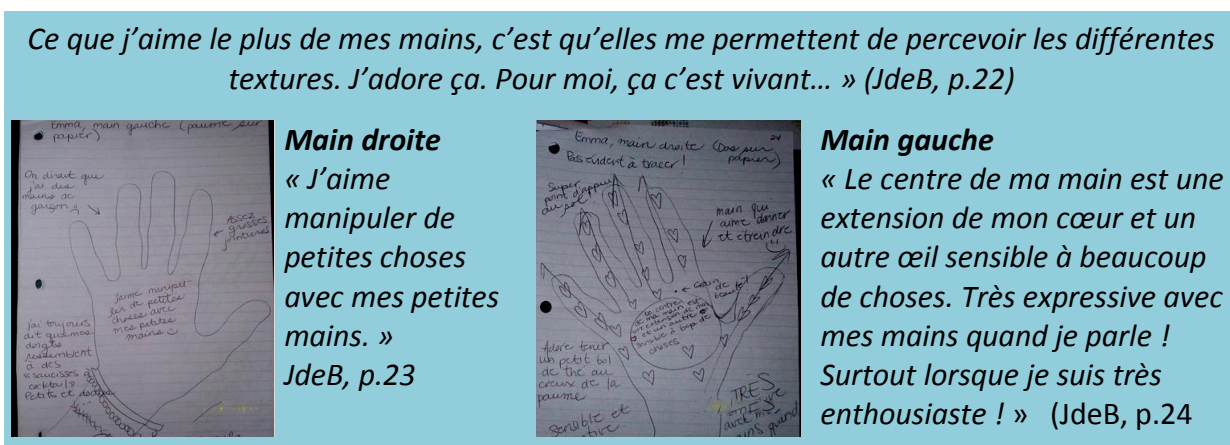 Ce que j’aime le plus de mes mains, c’est qu’elles me permettent de percevoir les différentes
textures. J’adore ça. Pour moi, ça c’est vivant… » (JdeB, p.22)
Emma, main gauche (paume sur
papier)
On dirait que
j'ai des
mains de
garçon
Assez
grosses
jointures
J'aime manipu-
ler de petites
choses avec
mes petites
mains
J'ai toujours
dit que mes
doigts
ressemblent
à des
saucisses à
cocktails.
Petits et
Main droite
« J’aime
manipuler de
petites choses
avec mes petites
mains. »
JdeB, p.23
24
Emma, main droite (Dos sur
papier)
Pas évident à tracer !
Super
point d'appui
au sol
main qui
aime donner
et étreindre
Grain de
beauté
le centre
de ma main est
un extension de mon
et un autre
sensible à bcp de
choses
Adore tenir
un petit bol
de thé au
creux de la
paume
Sensible et
TRÈS
avec mes
mains quand
Main gauche
« Le centre de ma main est une
extension de mon cœur et un
autre œil sensible à beaucoup
de choses. Très expressive avec
mes mains quand je parle !
Surtout lorsque je suis très
enthousiaste ! » (JdeB, p.24